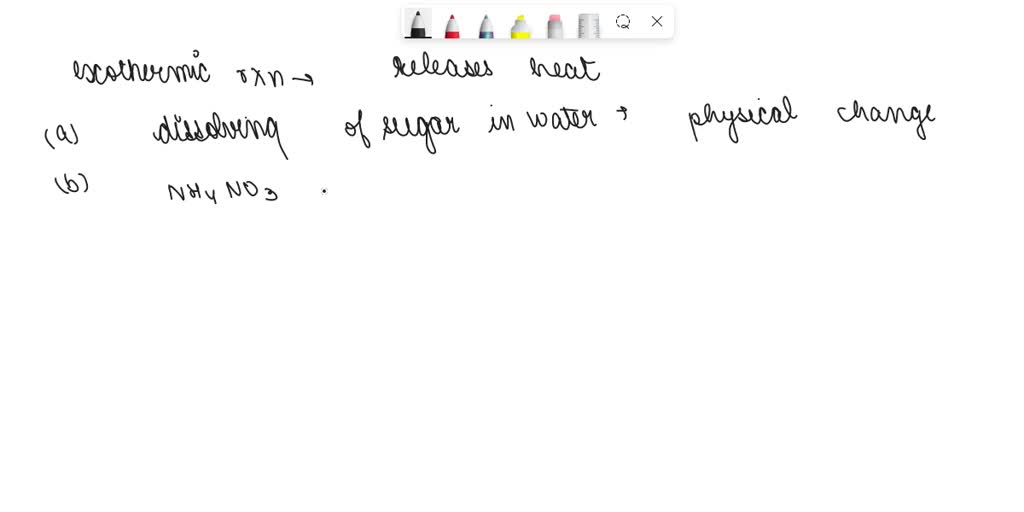 exothermic rxn → releases heat
(a) dissolving of sugar in water → physical change
(b) NH4NO3